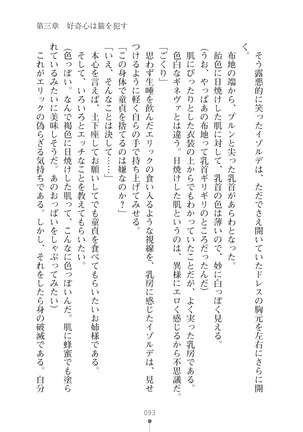 第三章　好奇心は猫を犯す
そう露悪的に笑ったイゾルデは、ただでさえ開いていたドレスの胸元を左右にさらに開
けた。
布地の端から、プルンと尖った乳首があらわとなった。
飴色に日焼けした肌に対して、乳首の色は薄いので、妙に白っぽく見える。
(うわ、やっぱあの布地って乳首ギリギリのところだったんだ)
肌にぴったりとした衣装の上からでもわかっていたことだが、よく実った乳房である。
色白なギネヴァとは違う。日焼けした肌というのは、異様にエロく感じるから不思議だ。
「ごくり」
思わず生唾を飲んだエリックの食い入るような視線を、乳房に感じたイゾルデは、見せ
つけるように軽く自らの手で持ち上げてみせる。
「この身体で童貞を捨てるのは嫌なのかな?」
「いえ、そんなことは決して……」
本心を言えば、土下座してお願いしてでも童貞を食べてもらいたいお姉様である。
そして、いろいろとエッチなことを教えてもらいたい。
(色っぽい。なんで褐色に日焼けした肌って、こんなに色っぽいんだ。肌に蜂蜜でも塗ら
れているみたいに美味しそうだ。あのおっぱいをしゃぶってみたい)
これがエリックの偽らざる気持ちである。しかし、それをしたら身の破滅である。自分
093